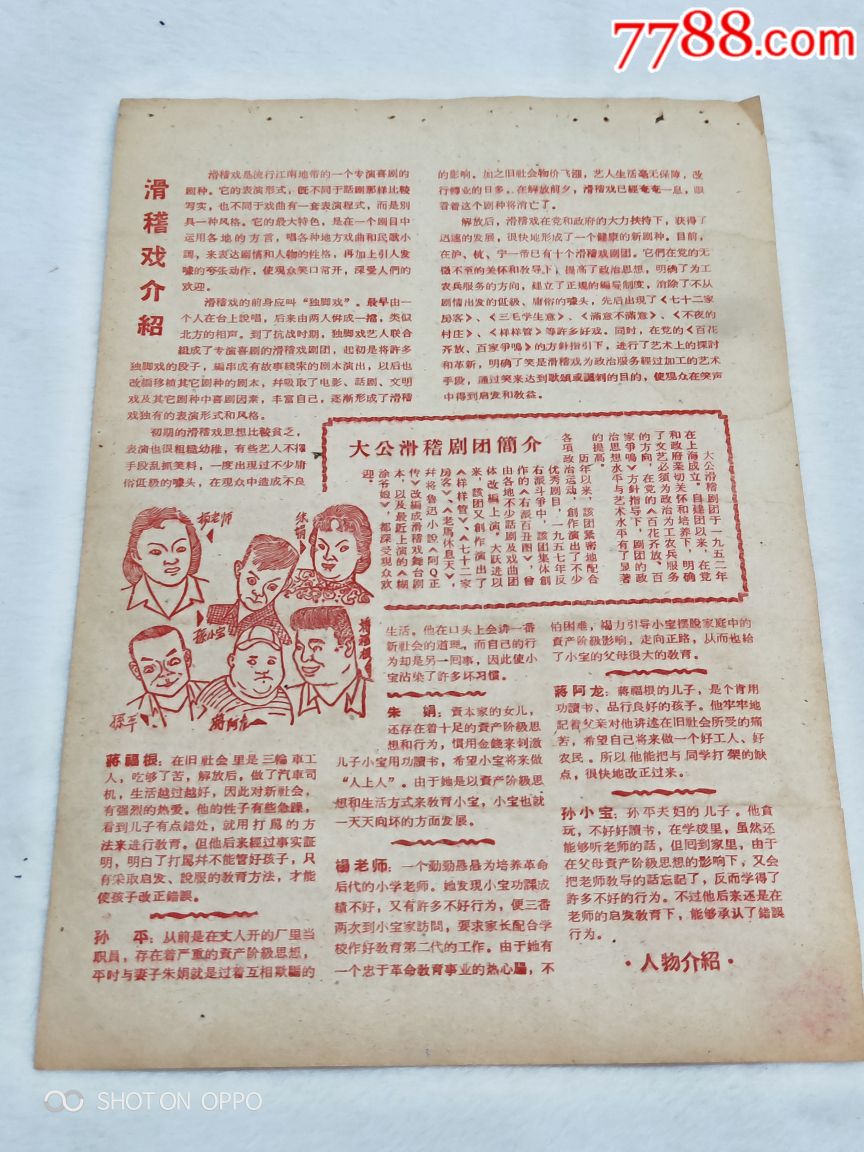 7788.com
滑稽戏介紹
滑稽戏是流行江南地带的一个专演喜剧的
剧种。它的表演形式，既不同于話剧那样比較
写实，也不同于戏曲有一套表演程式，而是别
具一种风格。它的最大特色，是在一个剧目中
运用各地的方言，唱各种地方戏曲和民歌小
調，来表达剧情和人物的性格，再加上引人发
噱的夸张动作，使观众笑口常开，深受人們的
欢迎。
滑稽戏的前身应叫“独脚戏”。最早由一
个人在台上說唱，后来由两人併成一擋，类似
北方的相声。到了抗战时期，独脚戏艺人联合
組成了专演喜剧的滑稽戏剧团，起初是将許多
独脚戏的段子，編串成有故事綫索的剧本演出，以后也
改編移植其它剧种的剧本，幷吸取了电影、話剧、文明
戏及其它剧种中喜剧因素，丰富自己，逐漸形成了滑稽
戏独有的表演形式和风格。
初期的滑稽戏思想比較貧乏，
表演也很粗糙幼稚，有些艺人不擇
手段乱抓笑料，一度出現过不少庸
俗低級的噱头，在观众中造成不良
的影响。加之旧社会物价飞漲，艺人生活毫无保障，改
行轉业的日多。在解放前夕，滑稽戏已經奄奄一息，眼
看着这个剧种将消亡了。
解放后，滑稽戏在党和政府的大力扶持下，获得了
迅速的发展，很快地形成了一个健康的新剧种。目前，
在沪、杭、宁一带已有十个滑稽戏剧团。它們在党的无
微不至的关怀和教导下，提高了政治思想，明确了为工
农兵服务的方向，建立了正規的編导制度，消除了不从
剧情出发的低級、庸俗的噱头，先后出現了《七十二家
房客》、《三毛学生意》、《满意不满意》、《不夜的
村庄》、《样样管》等許多好戏。同时，在党的《百花
齐放、百家爭鳴》的方針指引下，进行了艺术上的探討
和革新，明确了笑是滑稽戏为政治服务經过加工的艺术
手段，通过笑来达到歌頌或諷刺的目的，使观众在笑声
中得到启发和教益。
大公滑稽剧团簡介
大公滑稽剧团于一九五二年
在上海成立。自建团以来，在党
和政府亲切关怀和培养下，明确
了文艺必須为政治为工农兵服务
的方向，在党的《百花齐放、百
家爭鳴》方針指导下，剧团的政
治思想水平与艺术水平有了显著
的提高。
历年以来，該团紧密地配合
各項政治运动，創作演出了不少
优秀剧目，一九五七年反
右派斗爭中，該团集体創
作的《右派百丑图》，曾
由各地不少話剧及戏曲团
体改編上演。大跃进以
来，該团又創作演出了
《样样管》、《七十二家
房客》、《老馬休息天》，
幷将鲁迅小說《阿Q正
传》改編成滑稽戏舞台剧
本，以及最近上演的《糊
涂爷娘》，都深受观众欢
迎。
楊老师
朱娟
孫小宝
蔣福根
孫平
蔣阿龙
蔣福根：在旧社会里是三輪車工
人，吃够了苦，解放后，做了汽車司
机，生活越过越好，因此对新社会，
有强烈的热爱。他的性子有些急躁，
看到儿子有点錯处，就用打罵的方
法来进行教育。但他后来經过事实証
明，明白了打罵幷不能管好孩子，只
有采取启发、說服的教育方法，才能
使孩子改正錯誤。
孙　平：从前是在丈人开的厂里当
职員，存在着严重的資产阶級思想，
平时与妻子朱娟就是过着互相欺騙的
生活。他在口头上会讲一番
新社会的道理，而自己的行
为却是另一回事，因此使小
宝沾染了許多坏习慣。
朱　娟：資本家的女儿，
还存在着十足的資产阶級思想
和行为，慣用金錢来刺激
儿子小宝用功讀书，希望小宝将来做
“人上人”。由于她是以資产阶級思
想和生活方式来教育小宝，小宝也就
一天天向坏的方面发展。
楊老师：一个勤勤恳恳为培养革命
后代的小学老师。她发現小宝功課成
績不好，又有許多不好行为，便三番
两次到小宝家訪問，要求家长配合学
校作好教育第二代的工作。由于她有
一个忠于革命教育事业的热心腸，不
怕困难，竭力引导小宝摆脫家庭中的
資产阶級影响，走向正路，从而也給
了小宝的父母很大的教育。
蔣阿龙：蔣福根的儿子，是个肯用
功讀书、品行良好的孩子。他牢牢地
記着父亲对他讲述在旧社会所受的痛
苦，希望自己将来做一个好工人、好
农民。所以他能把与同学打架的缺
点，很快地改正过来。
孙小宝：孙平夫妇的儿子。他貪
玩，不好好讀书，在学校里，虽然还
能够听老师的話，但回到家里，由于
在父母資产阶級思想的影响下，又会
把老师教导的話忘記了，反而学得了
許多不好的行为。不过他后来还是在
老师的启发教育下，能够承认了錯誤
行为。
·人物介紹·
SHOT ON OPPO